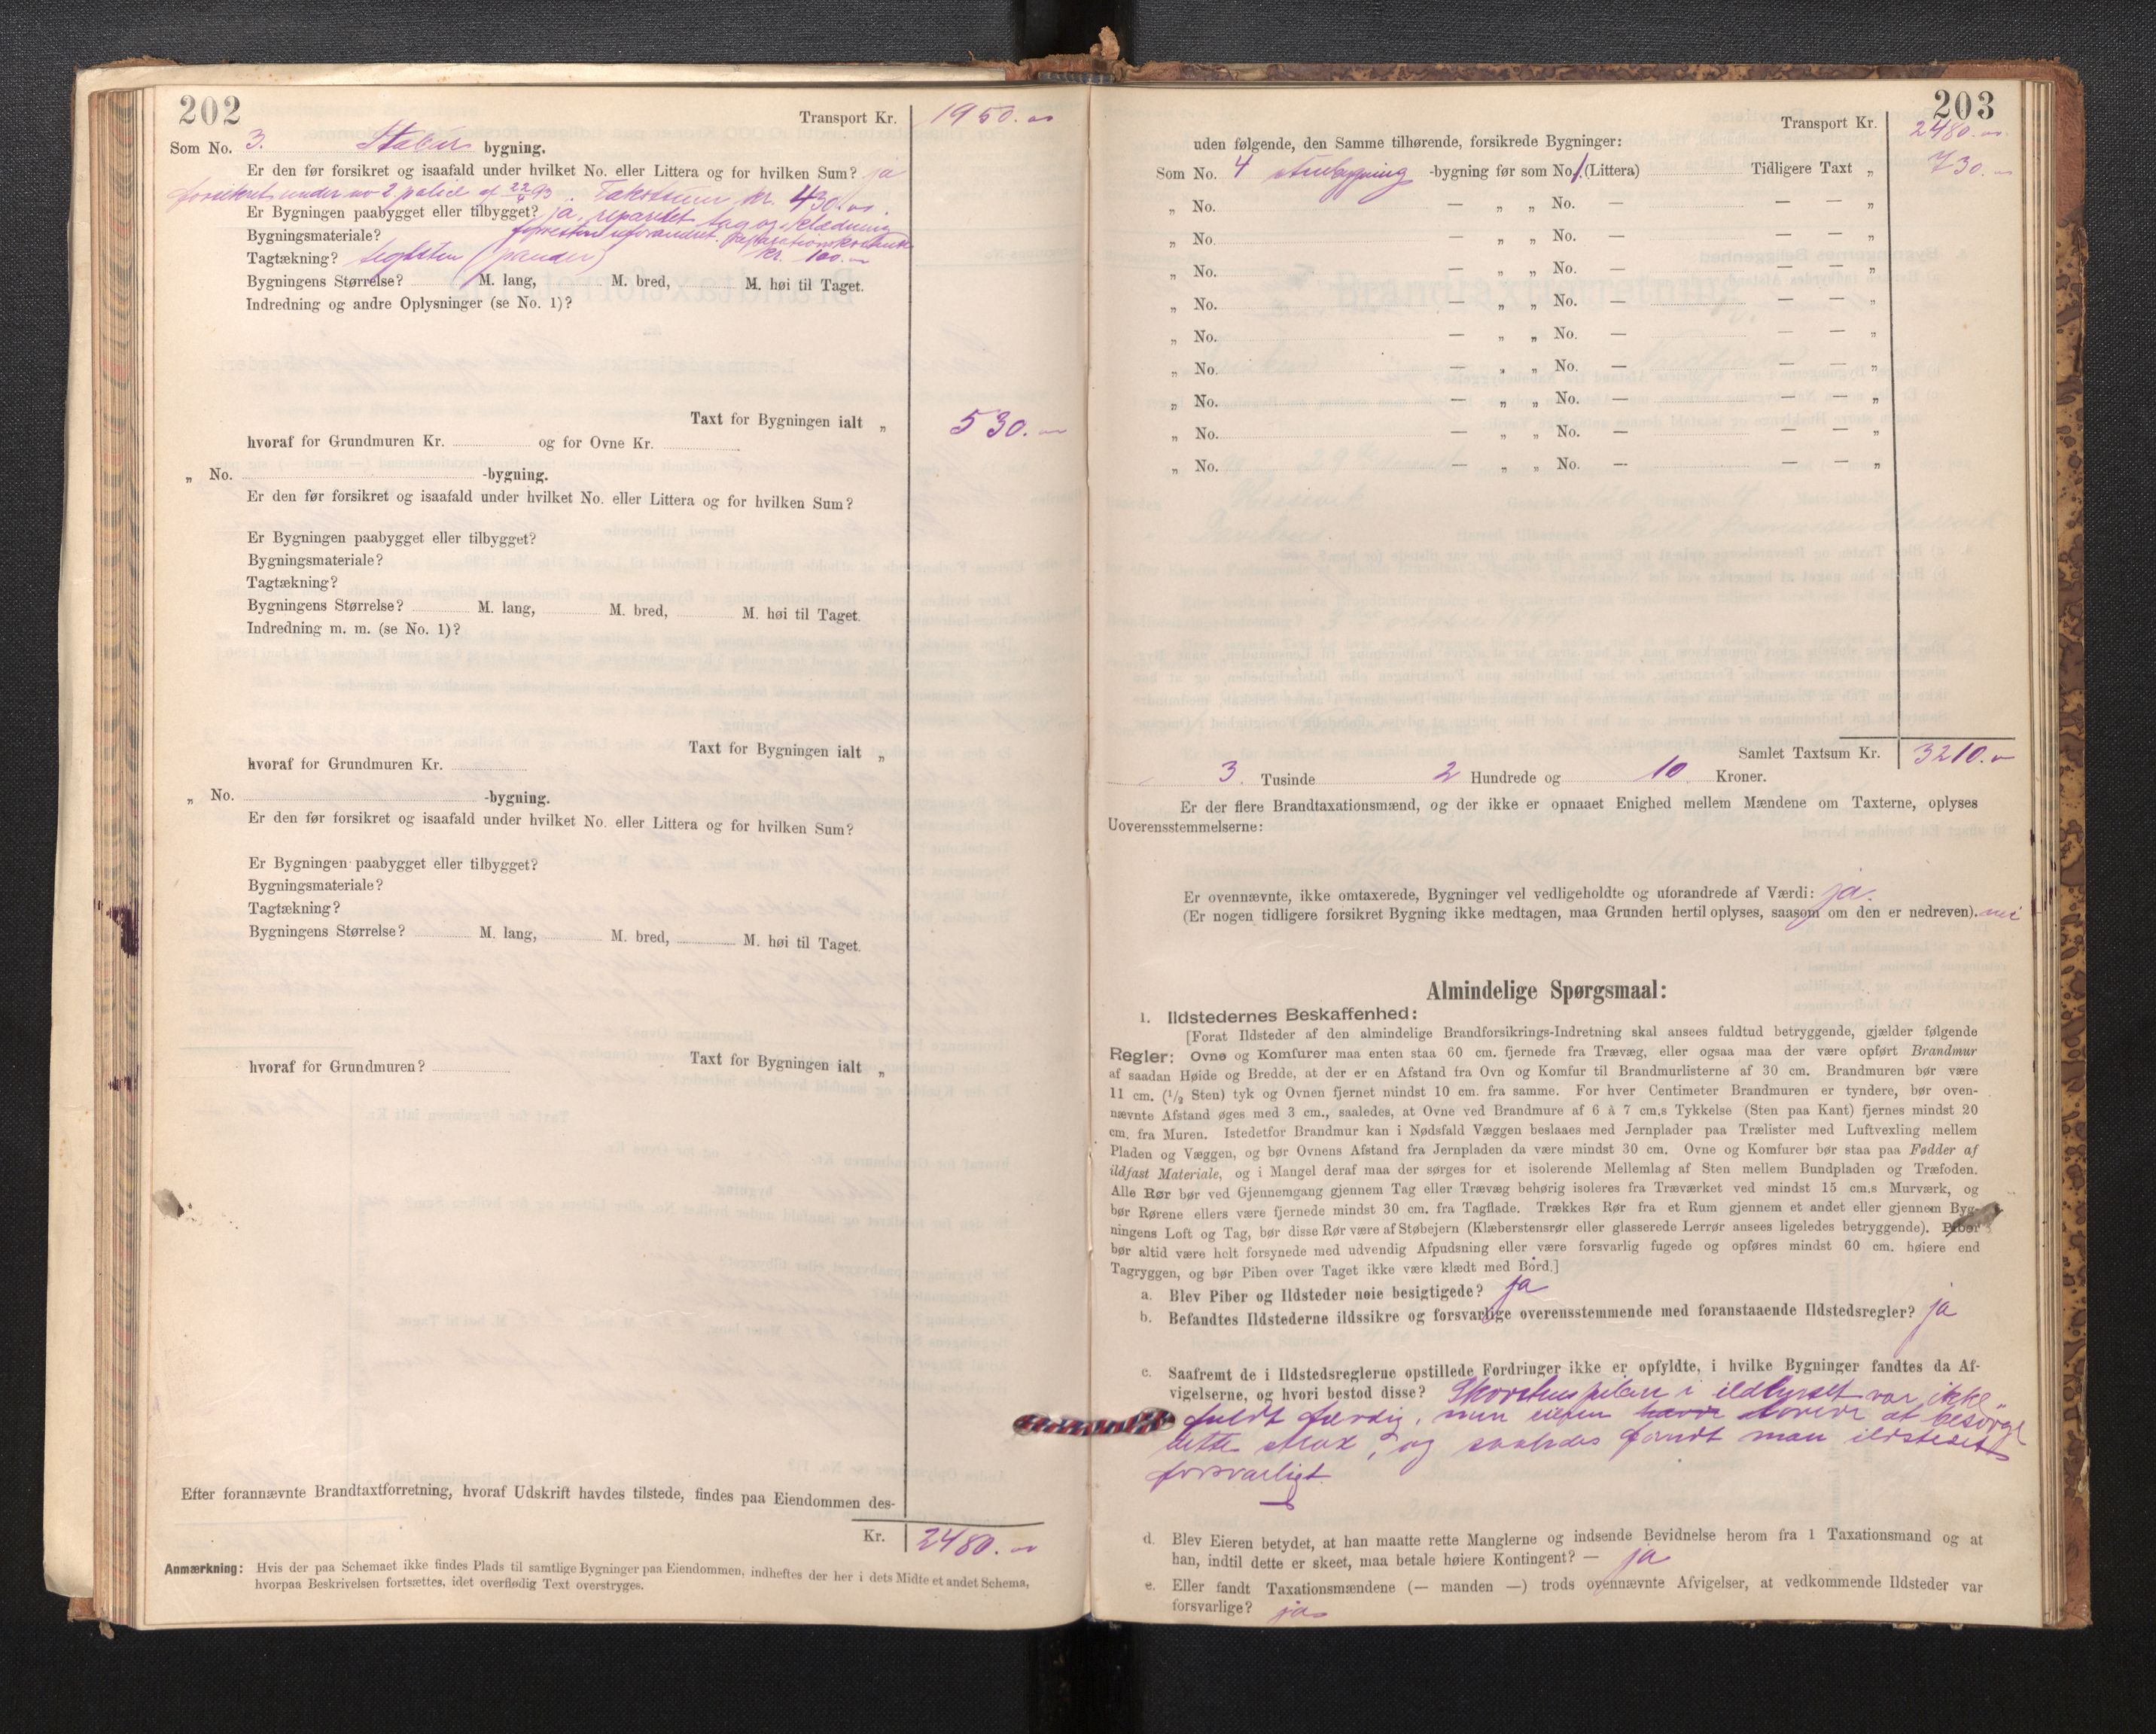 202
Transport Kr. 1950.-
Som No. 3. Stabur bygning.
Er den før forsikret og isaafald under hvilket No. eller Littera og for hvilken Sum? ja
forsikret under no 2 police af 22/4 93. Takstsum kr. 430.-
Er Bygningen paabygget eller tilbygget? ja, reparert tag og klædning
Bygningsmateriale? forresten uforandret. Reparationskostnad
Tagtækning? teglsten (pander) kr. 100.-
Bygningens Størrelse? M. lang, M. bred, M. høi til Taget.
Indredning og andre Oplysninger (se No. 1)?
Taxt for Bygningen ialt „ 530.-
hvoraf for Grundmuren Kr. og for Ovne Kr.
„ No. -bygning.
Er den før forsikret og isaafald under hvilket No. eller Littera og for hvilken Sum?
Er Bygningen paabygget eller tilbygget?
Bygningsmateriale?
Tagtækning?
Bygningens Størrelse? M. lang, M. bred, M. høi til Taget.
Indredning m. m. (se No. 1)?
Taxt for Bygningen ialt „
hvoraf for Grundmuren Kr.
„ No. -bygning.
Er den før forsikret og isaafald under hvilket No. eller Littera og for hvilken Sum?
Er Bygningen paabygget eller tilbygget?
Bygningsmateriale?
Tagtækning?
Bygningens Størrelse? M. lang, M. bred, M. høi til Taget.
Taxt for Bygningen ialt „
hvoraf for Grundmuren?
Efter forannævnte Brandtaxtforretning, hvoraf Udskrift havdes tilstede, findes paa Eiendommen des-
Kr. 2480.-
Anmærkning: Hvis der paa Schemaet ikke findes Plads til samtlige Bygninger paa Eiendommen, indheftes der her i dets Midte et andet Schema,
hvorpaa Beskrivelsen fortsættes, idet overflødig Text overstryges.
203
Transport Kr. 2480.-
uden følgende, den Samme tilhørende, forsikrede Bygninger:
Som No. 4 stubygning -bygning før som No. 1. (Littera) Tidligere Taxt „ 730.-
„ No. — „ „ No. — — — „
„ No. — „ „ No. — — — „
„ No. — „ „ No. — — — „
„ No. — „ „ No. — — — „
„ No. — „ „ No. — — — „
„ No. — „ „ No. — — — „
„ No. — „ „ No. — — — „
„ No. — „ „ No. — — — „
„ No. — „ „ No. — — — „
Samlet Taxtsum Kr. 3210.-
3. Tusinde 2 Hundrede og 10 Kroner.
Er der flere Brandtaxationsmænd, og der ikke er opnaaet Enighed mellem Mændene om Taxterne, oplyses
Uoverensstemmelserne:
Er ovennævnte, ikke omtaxerede, Bygninger vel vedligeholdte og uforandrede af Værdi: ja.
(Er nogen tidligere forsikret Bygning ikke medtagen, maa Grunden hertil oplyses, saasom om den er nedreven). nei
Almindelige Spørgsmaal:
1. Ildstedernes Beskaffenhed:
[Forat Ildsteder af den almindelige Brandforsikrings-Indretning skal ansees fuldtud betryggende, gjælder følgende
Regler: Ovne og Komfurer maa enten staa 60 cm. fjernede fra Trævæg, eller ogsaa maa der være opført Brandmur
af saadan Høide og Bredde, at der er en Afstand fra Ovn og Komfur til Brandmurlisterne af 30 cm. Brandmuren bør være
11 cm. (1/2 Sten) tyk og Ovnen fjernet mindst 10 cm. fra samme. For hver Centimeter Brandmuren er tyndere, bør oven-
nævnte Afstand øges med 3 cm., saaledes, at Ovne ved Brandmure af 6 à 7 cm.s Tykkelse (Sten paa Kant) fjernes mindst 20
cm. fra Muren. Istedetfor Brandmur kan i Nødsfald Væggen beslaaes med Jernplader paa Trælister med Luftvexling mellem
Pladen og Væggen, og bør Ovnens Afstand fra Jernpladen da være mindst 30 cm. Ovne og Komfurer bør staa paa Fødder af
ildfast Materiale, og i Mangel deraf maa der sørges for et isolerende Mellemlag af Sten mellem Bundpladen og Træfoden.
Alle Rør bør ved Gjennemgang gjennem Tag eller Trævæg behørig isoleres fra Træværket ved mindst 15 cm.s Murværk, og
bør Rørene ellers være fjernede mindst 30 cm. fra Tagflade. Trækkes Rør fra et Rum gjennem et andet eller gjennem Byg-
ningens Loft og Tag, bør disse Rør være af Støbejern (Klæberstensrør eller glasserede Lerrør ansees ligeledes betryggende). Piber
bør altid være helt forsynede med udvendig Afpudsning eller være forsvarlig fugede og opføres mindst 60 cm. høiere end
Tagryggen, og bør Piben over Taget ikke være klædt med Bord.]
a. Blev Piber og Ildsteder nøie besigtigede? ja
b. Befandtes Ildstederne ildssikre og forsvarlige overensstemmende med foranstaaende Ildstedsregler? ja
c. Saafremt de i Ildstedsreglerne opstillede Fordringer ikke er opfyldte, i hvilke Bygninger fandtes da Af-
vigelserne, og hvori bestod disse? Skorstenspiben i ildhuset var ikke
fuldt færdig, men eieren havde lovede at besørge
dette strax, og saaledes fandt man ildstedet
forsvarligt.
d. Blev Eieren betydet, at han maatte rette Manglerne og indsende Bevidnelse herom fra 1 Taxationsmand og at
han, indtil dette er skeet, maa betale høiere Kontingent? — ja
e. Eller fandt Taxationsmændene (— manden —) trods ovennævnte Afvigelser, at vedkommende Ildsteder var
forsvarlige? ja